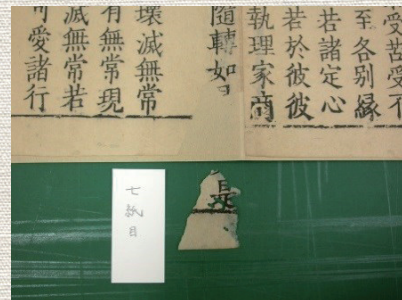 受苦受不
至各別緣
若諸定心
若於彼彼
執理家商
隨轉如
壞滅無常
有無常現
滅無常若
可愛諸行
是
七紙目